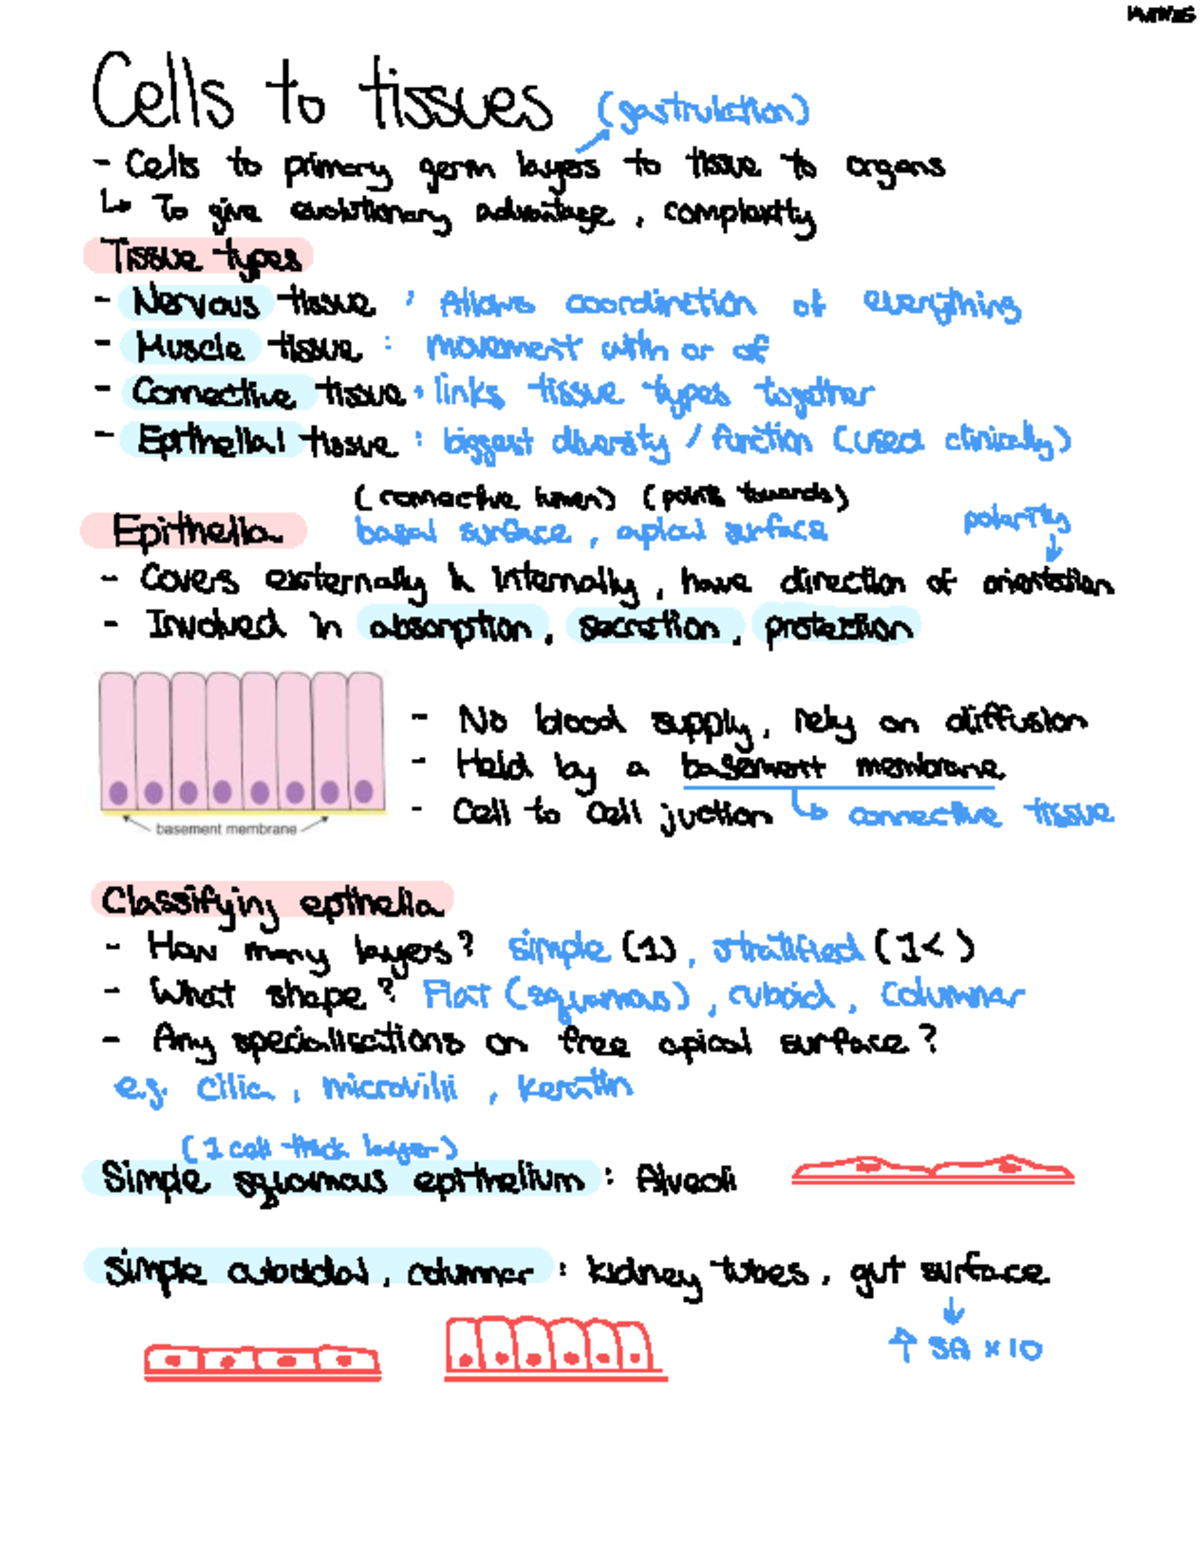 Cells to tissues (gastrulation)
- Cells to primary germ layers to tissue to organs
↳ To give evolutionary advantage, complexity
Tissue types
- Nervous tissue : Allows coordination of everything
- Muscle tissue : movement with or of
- Connective tissue : links tissue types together
- Epithelial tissue : biggest diversity / function (used clinically)
(connective lumen) (points towards)
Epithelia basal surface, apical surface polarity
- Covers externally & internally, have direction of orientation
- Involved in absorption, secretion, protection
- No blood supply, rely on diffusion
- Held by a basement membrane
- Cell to cell juction ↳ connective tissue
basement membrane
Classifying epithelia
- How many layers? simple (1), stratified (1<)
- What shape? Flat (squamous), cuboid, columnar
- Any specialisations on free apical surface?
e.g. cilia, microvilli, keratin
(1 cell thick layer)
Simple squamous epithelium : Alveoli
Simple cuboidal, columnar : kidney tubes, gut surface
↑ SA x10